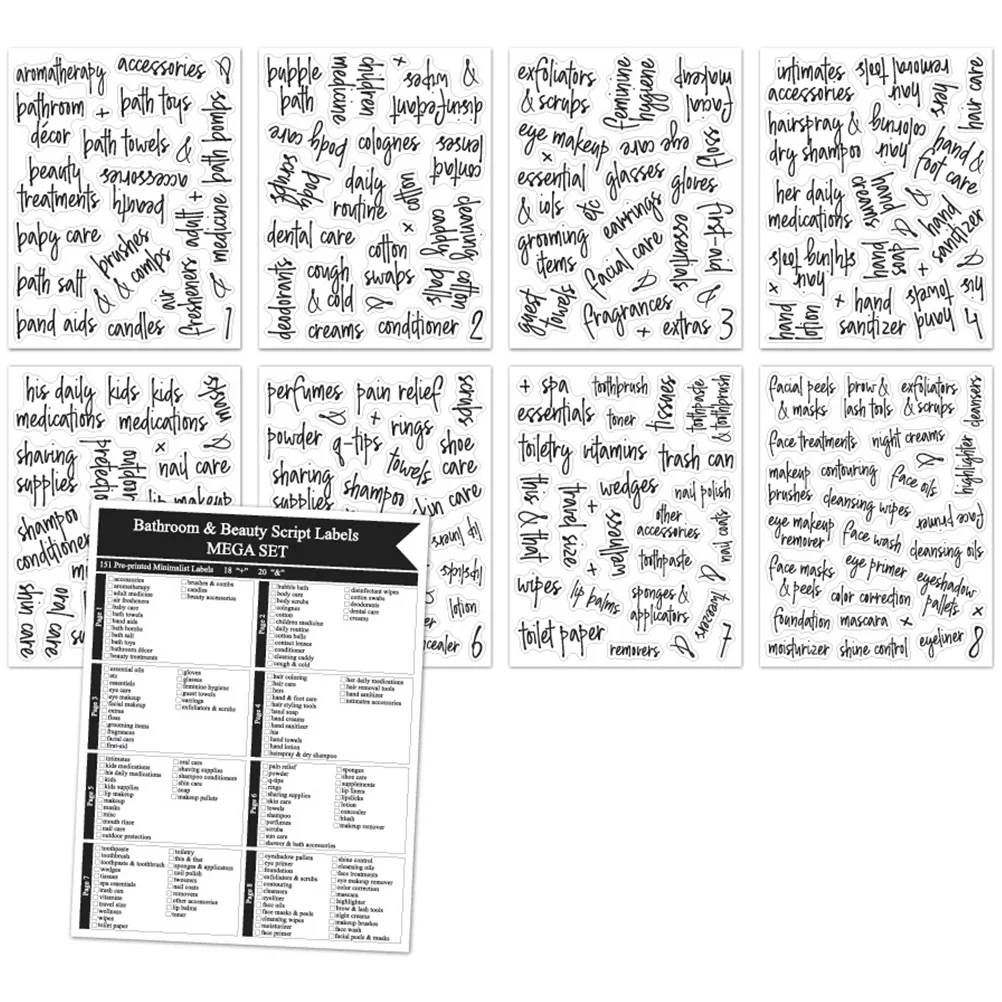 aromatherapy
accessories
&
bathroom
décor
+
bath toys
bath towels
&
bath bombs
beauty
treatments
beauty
accessories
baby care
brushes
& combs
adult +
medicine
bath salt
&
air
fresheners
band aids
candles
1
bubble
bath
children
medicine
+
disinfectant
wipes
&
body care
colognes
contact
lenses
body
scrubs
daily
routine
cotton
cleanning
caddy
dental care
+
cotton
swaps
cotton
balls
deodorants
cough
& cold
&
creams
conditioner
2
exfoliators
& scrubs
feminine
hygiene
facial
makeup
eye makeup
eye care
floss
+
essential
& iols
glasses
gloves
etc
earrings
grooming
items
facial care
essentials
first-aid
guest
towels
&
fragrances
&
+
extras
3
intimates
accessories
hair
removal tools
hers
hair care
hairspray &
dry shampoo
hair
coloring
hand &
foot care
her daily
medications
hand
creams
&
hand
sanitizer
hair
styling tools
hand
soaps
+
&
his
+
hand
lotion
+
hand
sanitizer
hand
towels
4
his daily
medications
kids
kids
medications
masks
&
shaving
supplies
outdoor
+
nail care
lip makeup
shampoo
conditioner
oral care
skin care
perfumes
pain relief
scrubs
&
+
rings
powder
q-tips
shoe
care
towels
sharing
supplies
shampoo
skin care
lip liners
lipsticks
lotion
6
+ spa
essentials
toothbrush
toner
tissues
toothpaste
& toothbrush
toiletry
vitamins
trash can
this & that
travel size
+
wedges
nail polish
wellness
other
accessories
nail coats
toothpaste
wipes
lip balms
sponges &
applicators
tweezers
toilet paper
removers
&
7
facial peels
& masks
brow &
lash tools
exfoliators
& scrubs
cleansers
face treatments
night creams
highlighter
makeup
brushes
contouring
face oils
cleansing wipes
face primer
eye makeup
remover
face wash
cleansing oils
face masks
& peels
eye primer
eyeshadow
pallets
color correction
+
foundation
mascara
+
moisturizer
shine control
eyeliner
8
Bathroom & Beauty Script Labels
MEGA SET
151 Pre-printed Minimalist Labels 18 "+" 20 "&"
Page 1
accessories
aromatherapy
adult medicine
air fresheners
baby care
bath towels
band aids
bath bombs
bath salt
bath toys
bathroom décor
beauty treatments
brushes & combs
candles
beauty accessories
Page 2
bubble bath
body care
body scrubs
cologne
cotton
children medicine
daily routine
cotton balls
contact lenses
conditioner
cleaning caddy
cough & cold
disinfectant wipes
cotton swabs
deodorants
dental care
creams
Page 3
essential oils
etc
essentials
eye care
eye makeup
facial makeup
extras
floss
grooming items
fragrances
facial care
first-aid
gloves
glasses
feminine hygiene
guest towels
earrings
exfoliators & scrubs
Page 4
hair coloring
hair care
hers
hand & foot care
hair styling tools
hand soap
hand creams
hand sanitizer
his
hand towels
hand lotion
hairspray & dry shampoo
her daily medications
hair removal tools
hand sanitizer
intimates accessories
Page 5
intimates
kids medications
his daily medications
kids
kids supplies
lip makeup
makeup
masks
misc
mouth rinse
nail care
outdoor protection
oral care
shaving supplies
shampoo conditioners
skin care
soap
makeup pallets
Page 6
pain relief
powder
q-tips
rings
sharing supplies
skin care
towels
shampoo
perfumes
scrubs
sun care
shower & bath accessories
sponges
shoe care
supplements
lip liners
lipsticks
lotion
concealer
blush
makeup remover
Page 7
toothpaste
toothbrush
toothpaste & toothbrush
wedges
tissues
spa essentials
trash can
vitamins
travel size
wellness
wipes
toilet paper
toiletry
this & that
sponges & applicators
nail polish
tweezers
nail coats
removers
other accessories
lip balms
toner
Page 8
eyeshadow pallets
eye primer
foundation
exfoliators & scrubs
contouring
cleansers
eyeliner
face oils
face masks & peels
cleansing wipes
moisturizer
face primer
shine control
cleansing oils
face treatments
eye makeup remover
color correction
mascara
highlighter
brow & lash tools
night creams
makeup brushes
face wash
facial peels & masks